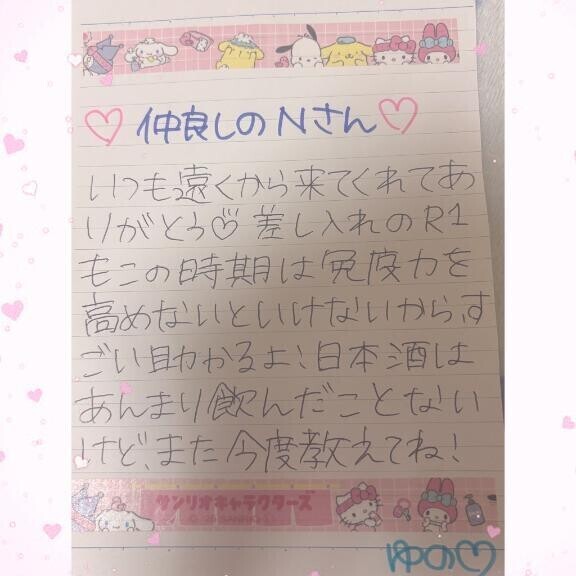 ♡仲良しのNさん♡
いつも遠くから来てくれてあ
りがとう♡差し入れのR1
もこの時期は免疫力を
高めないといけないから、す
ごい助かるよ!日本酒は
あんまり飲んだことない
けど、また今度教えてね!
サンリオキャラクターズ
ゆの♡